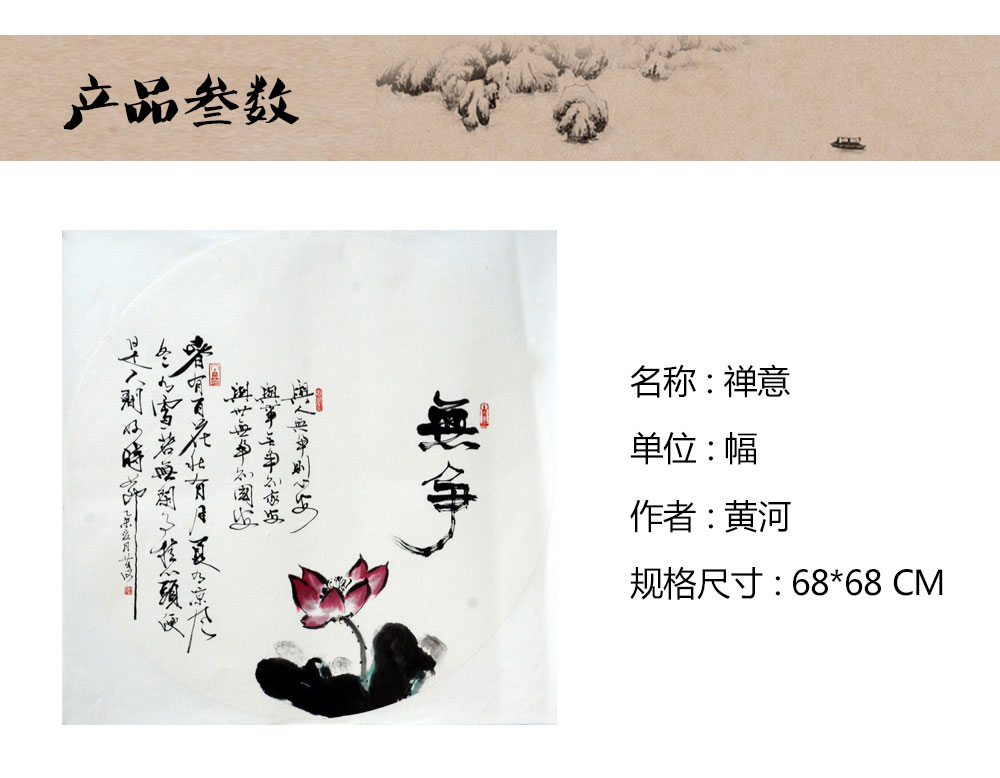 产品叁数
無争
與人無争則心安
與事無争則家安
與世無争則國安
春有百花秋有月夏有凉风
冬有雪若無闲事挂心頭便
是人間好時節
名称 : 禅意
单位 : 幅
作者 : 黄河
规格尺寸 : 68*68 CM